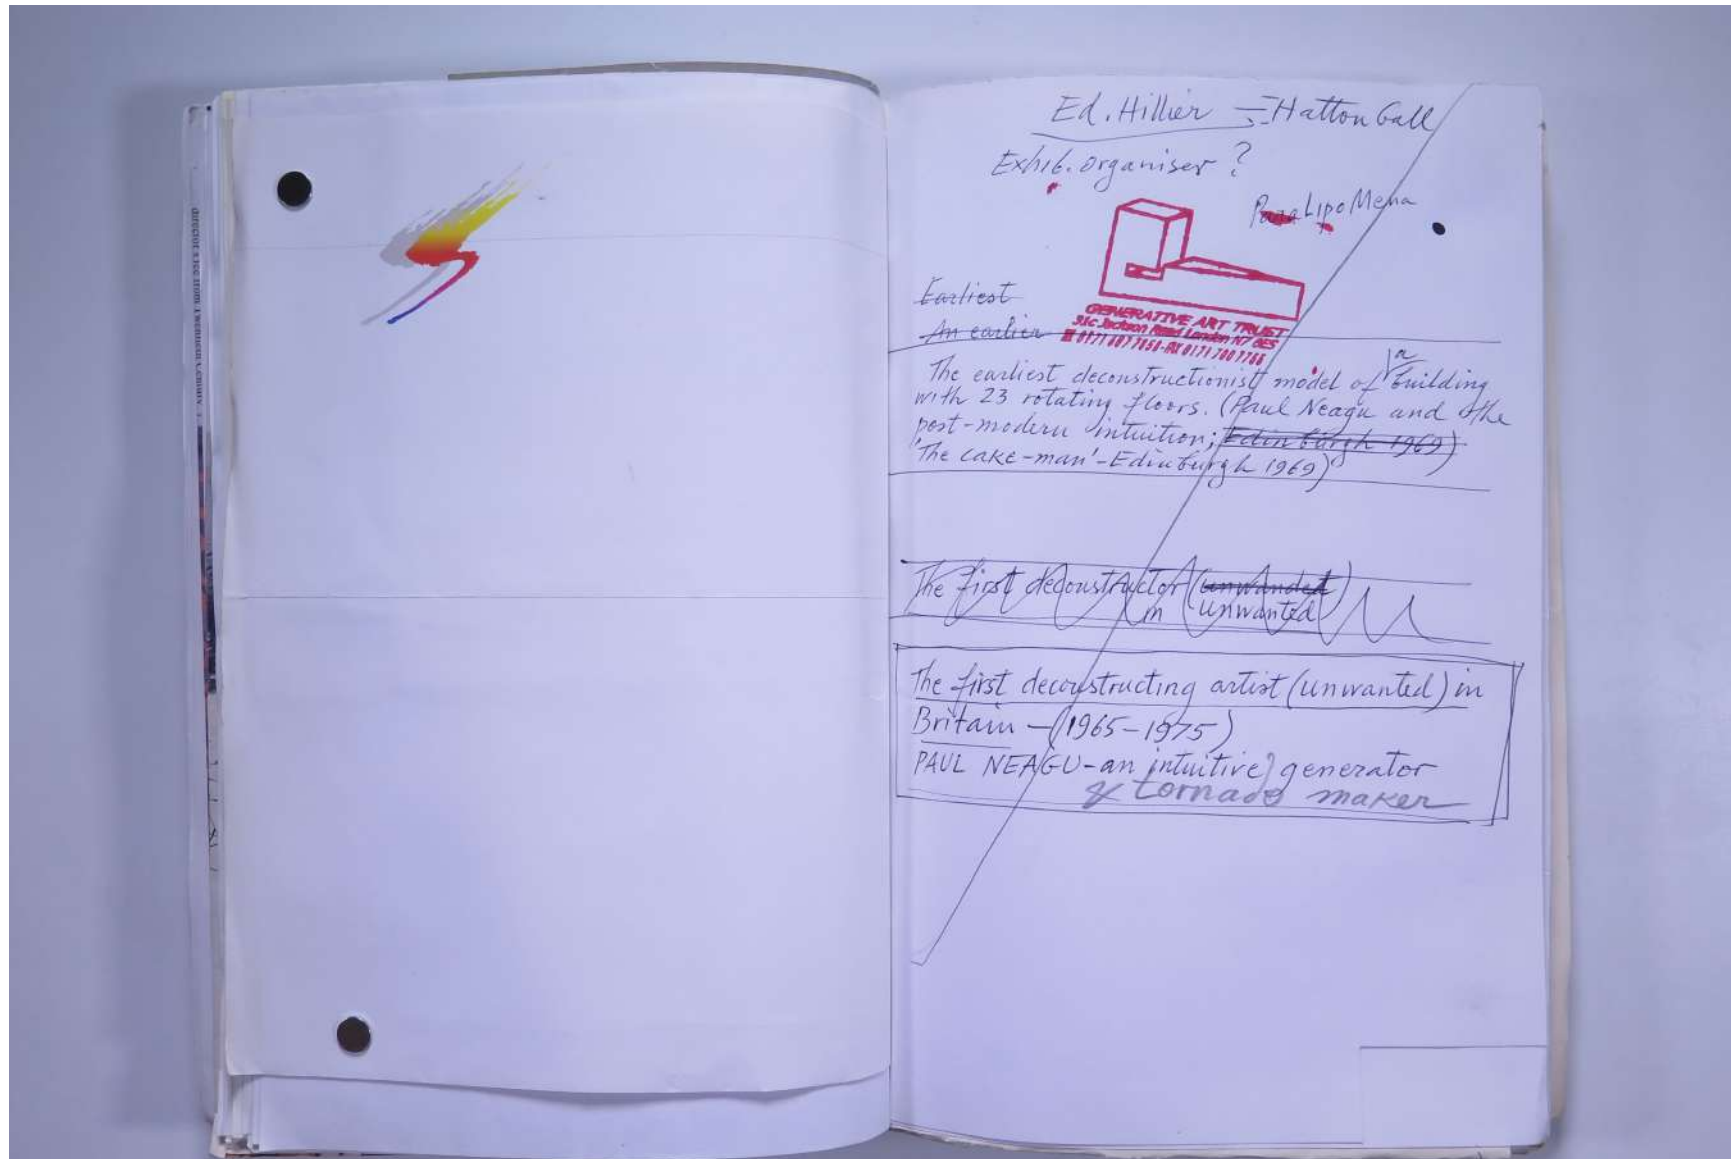 Ed. Hillier - Hatton Gall
Exhib. organiser ?
ParaLipoMena
GENERATIVE ART TRUST
31c Jackson Road London N7 6ES
0171 607 7858-FAX 0171 700 7766
Earliest
An earlier
The earliest deconstructionist model of a building
with 23 rotating floors. (Paul Neagu and the
post-modern intuition; Edinburgh 1969)
'The cake-man'-Edinburgh 1969)
The first deconstructor (unwanded)
in unwanted
The first deconstructing artist (unwanted) in
Britain - (1965-1975)
PAUL NEAGU-an intuitive generator
& tornado maker